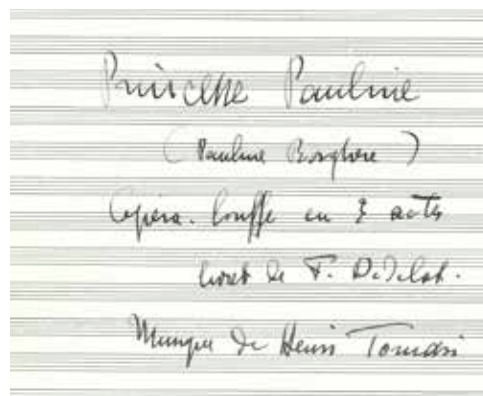 Princesse Pauline
(Pauline Borghese)
Opéra. bouffe en 3 actes
livret de F. Didelot.
Musique de Henri Tomasi